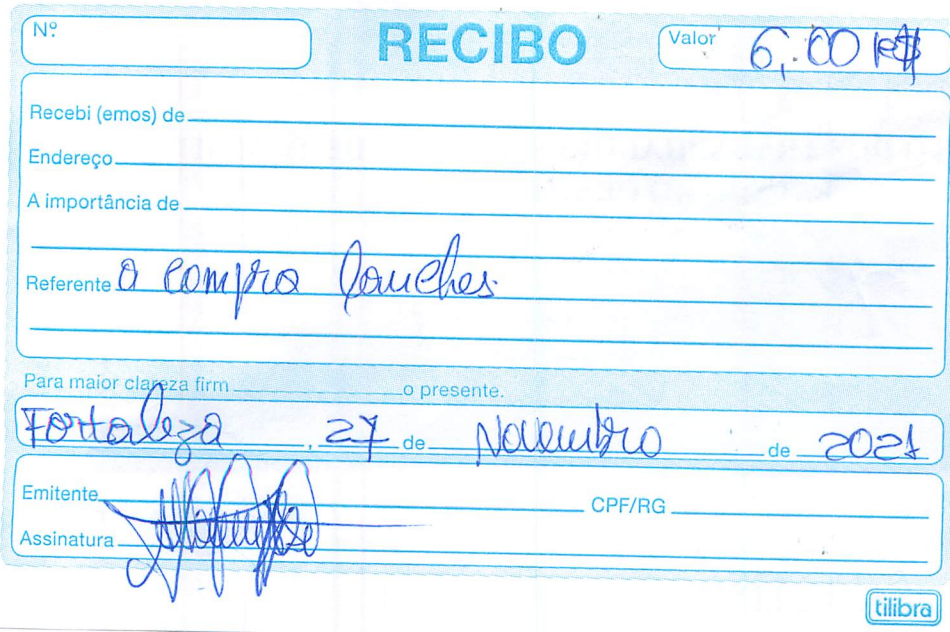 Nº
RECIBO
Valor 6,00 R$
Recebi (emos) de
Endereço
A importância de
Referente a compra lanches
Para maior clareza firm o presente.
Fortaleza, 27 de Novembro de 2021
Emitente CPF/RG
Assinatura
tilibra